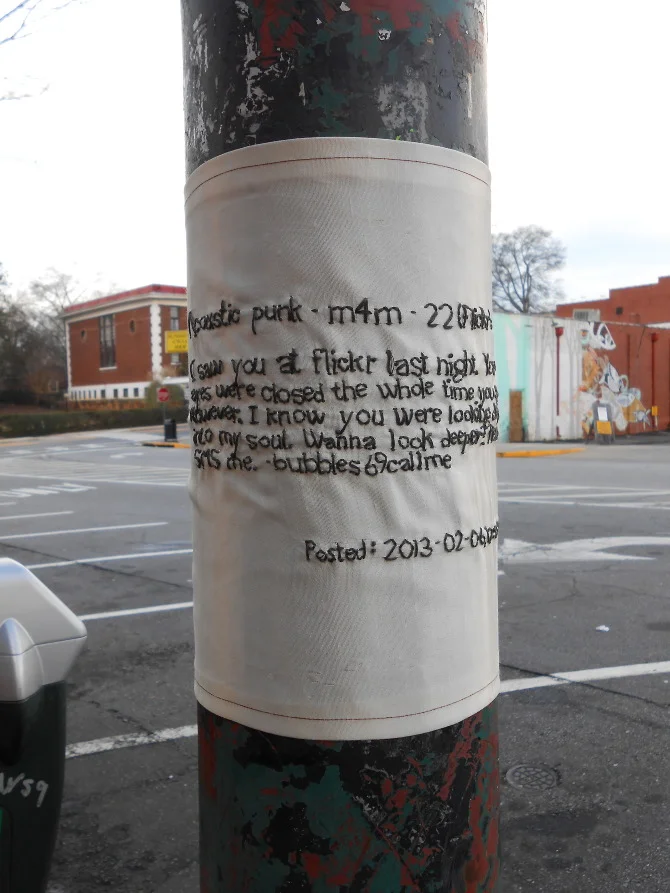 Acoustic punk - m4m - 22 (Flickr
I saw you at flickr last night. Your
eyes were closed the whole time you
however. I know you were looking
into my soul. Wanna look deeper?
SMS me. -bubbles69callme
Posted: 2013-02-06,
W59